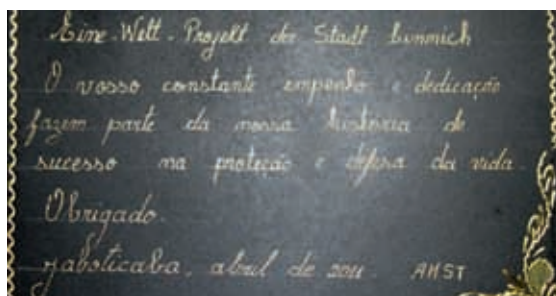 Eine-Welt-Projekt der Stadt Linnich
O vosso constante empenho e dedicação
fazem parte da nossa história de
sucesso na proteção e defesa da vida.
Obrigado.
Jaboticaba, abril de 2011. AMST